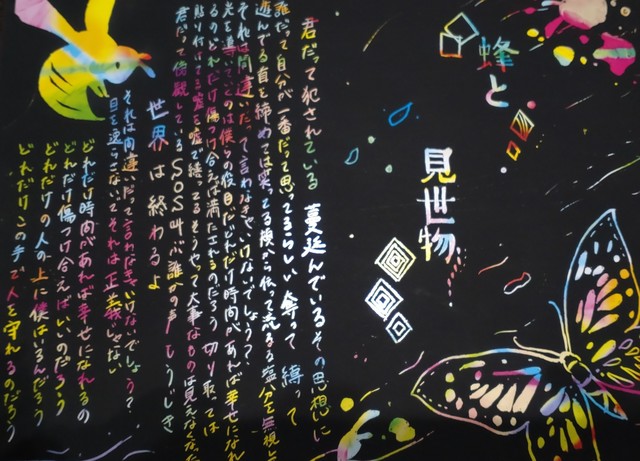 蜂と
見世物
君だって犯されている 蔓延んでいるその思想に
誰だって自分が一番だって思ってるらしい 奪って 縛って
遊んでる首を締めては笑ってる横から伝って流るる塩分を無視して
それは間違いだって言わなきゃいけないでしょう?
光を導いてくのは僕らの役目だどれだけ時間があれば幸せになれ
るのどれだけ傷つけ合えば満たされるのだろう 切り取っては
貼り付けてる嘘を嘘で繕ってるそうやって大事なものは見えなくなった
君だって傍観しているSOS叫ぶ誰かの声 もうじき
世界は終わるよ
それは間違いだって言わなきゃいけないでしょう?
目を逸らさないでそれは正義じゃない
どれだけ時間があれば幸せになれるの
どれだけ傷つけ合えばいいのだろう
どれだけの人の上に僕はいるんだろう
どれだけこの手で人を守れるのだろう